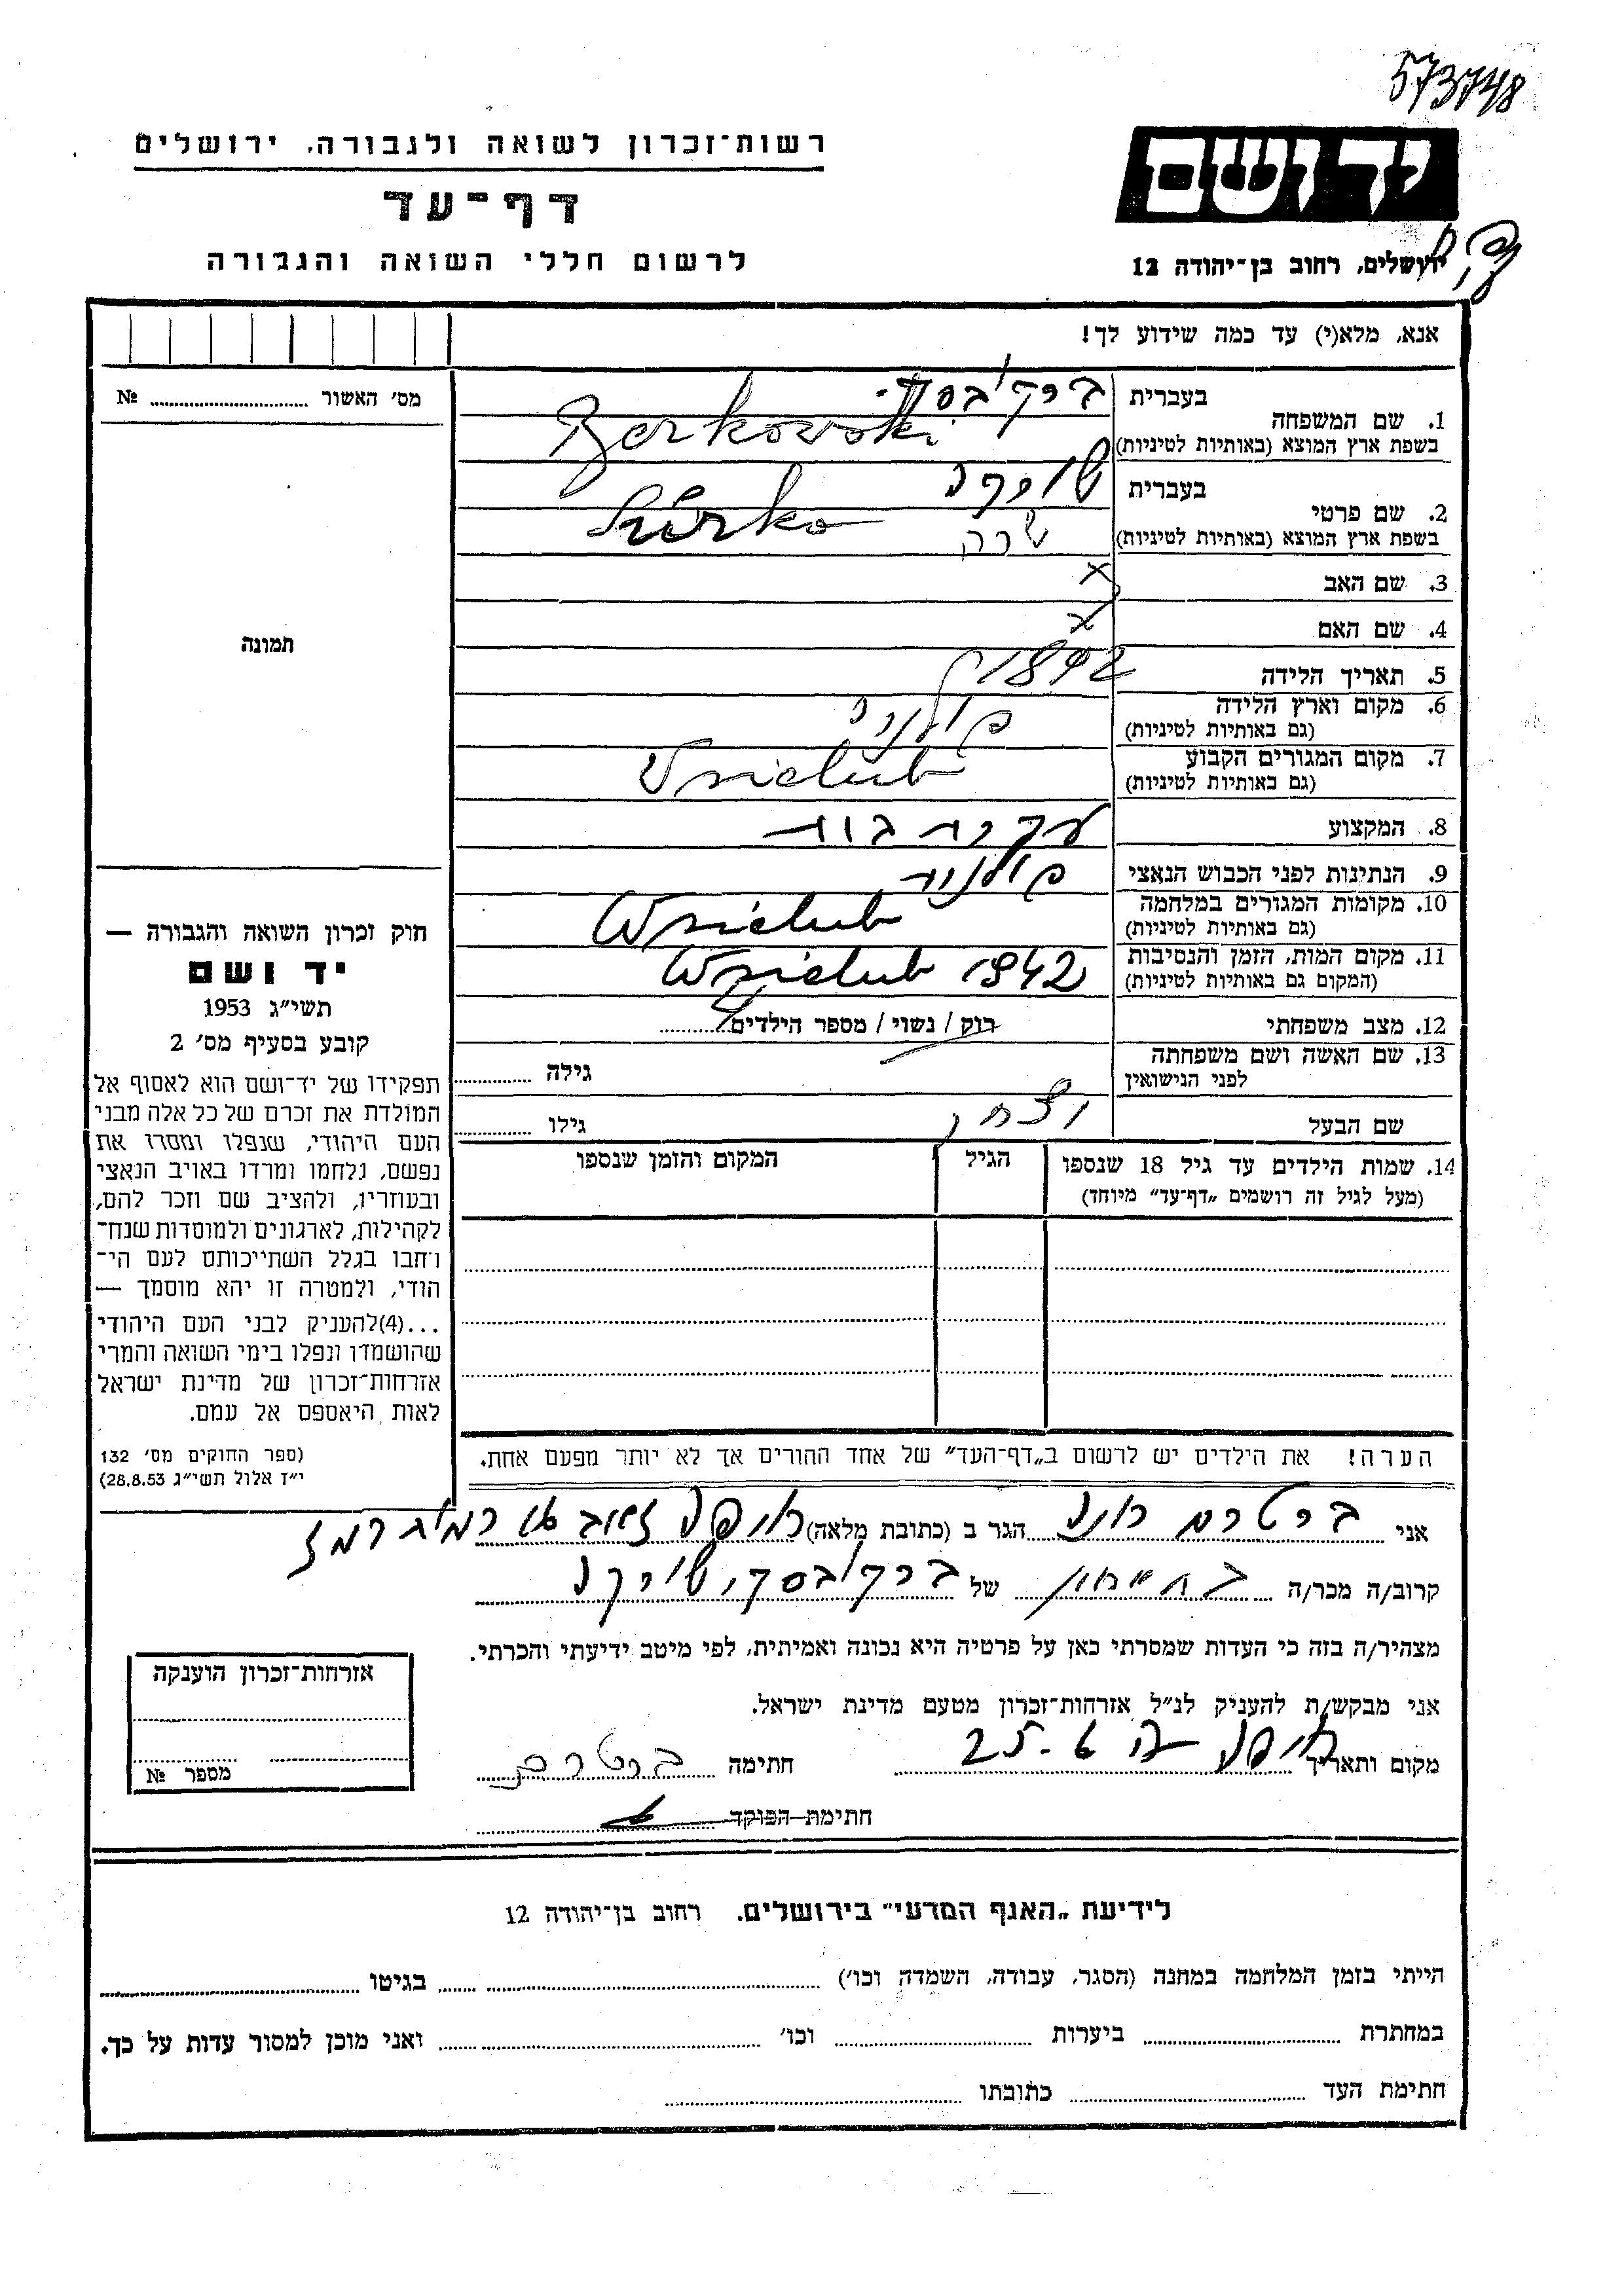 573748
רשות-זכרון לשואה ולגבורה, ירושלים
דף-עד
לרשום חללי השואה והגבורה
יד ושם
ירושלים, רחוב בן-יהודה 12
אנא, מלא(י) עד כמה שידוע לך!
מס' האשור № ....................
1. שם המשפחה בעברית ברקובסקי
בשפת ארץ המוצא (באותיות לטיניות) Berkowski
2. שם פרטי בעברית שורקה
בשפת ארץ המוצא (באותיות לטיניות) שרה Surka
3. שם האב x
4. שם האם x
5. תאריך הלידה 1892
6. מקום וארץ הלידה (גם באותיות לטיניות) פולניה
7. מקום המגורים הקבוע (גם באותיות לטיניות) Wsielub
8. המקצוע עקרת בית
9. הנתינות לפני הכבוש הנאצי פולנית
10. מקומות המגורים במלחמה (גם באותיות לטיניות) Wsielub
11. מקום המות, הזמן והנסיבות (המקום גם באותיות לטיניות) Wsielub 1942
12. מצב משפחתי רוק / נשוי / מספר הילדים
13. שם האשה ושם משפחתה לפני הנישואין גילה
שם הבעל יצחק גילו
14. שמות הילדים עד גיל 18 שנספו הגיל המקום והזמן שנספו
(מעל לגיל זה רושמים „דף-עד" מיוחד)
הערה! את הילדים יש לרשום ב„דף-העד" של אחד ההורים אך לא יותר מפעם אחת.
תמונה
חוק זכרון השואה והגבורה —
יד ושם
תשי"ג 1953
קובע בסעיף מס' 2
תפקידו של יד-ושם הוא לאסוף אל
המולדת את זכרם של כל אלה מבני
העם היהודי, שנפלו ומסרו את
נפשם, נלחמו ומרדו באויב הנאצי
ובעוזריו, ולהציב שם וזכר להם,
לקהילות, לארגונים ולמוסדות שנח-
רבו בגלל השתייכותם לעם הי-
הודי, ולמטרה זו יהא מוסמך —
...(4)להעניק לבני העם היהודי
שהושמדו ונפלו בימי השואה והמרי
אזרחות-זכרון של מדינת ישראל
לאות היאספם אל עמם.
(ספר החוקים מס' 132
י"ז אלול תשי"ג 28.8.53)
אני ברטרם הגר ב (כתובת מלאה) חיפה
קרוב/ה מכר/ה של ברקובסקי שורקה
מצהיר/ה בזה כי העדות שמסרתי כאן על פרטיה היא נכונה ואמיתית, לפי מיטב ידיעתי והכרתי.
אני מבקש/ת להעניק לנ"ל אזרחות-זכרון מטעם מדינת ישראל.
מקום ותאריך חיפה 25.6 חתימה ברטרם
חתימת הפוקד
אזרחות-זכרון הוענקה
מספר №
לידיעת „האגף המדעי" בירושלים. רחוב בן-יהודה 12
הייתי בזמן המלחמה במחנה (הסגר, עבודה, השמדה וכו') בגיטו
במחתרת ביערות וכו' ואני מוכן למסור עדות על כך.
חתימת העד כתובתו